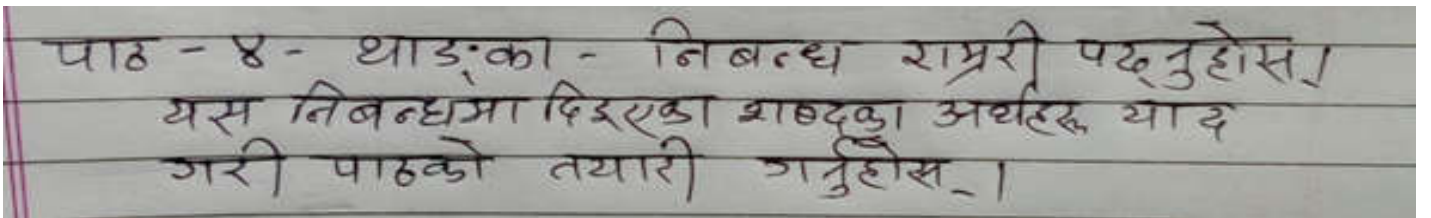 पाठ - ४ - थाङ्का - निबन्ध राम्ररी पढ्नुहोस्।
यस निबन्धमा दिइएका शब्दका अर्थहरू याद
गरी पाठको तयारी गर्नुहोस् ।